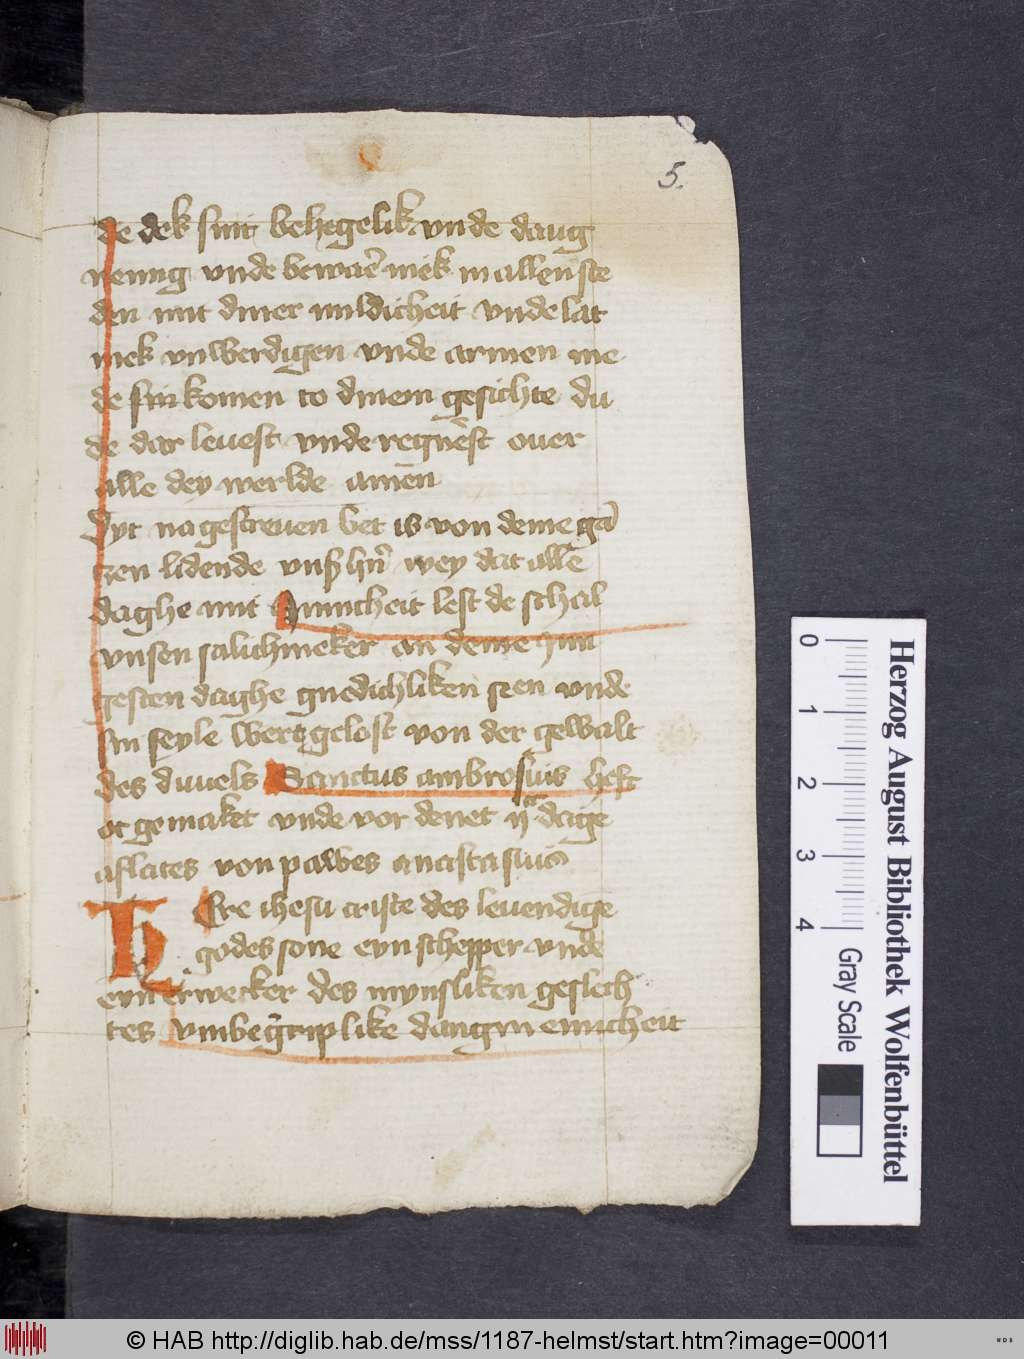 5.
de dek sint behegelik vnde daug
nennig vnde bewaer mek in allen ste
den mit diner mildicheit vnde lat
mek vnwerdigen vnde armen me
de sin komen to dinem gesichte du
de dar leuest vnde regnest ouer
alle dey werlde amen
Dyt nagescreuen bet is von deme gā
zen lidende vnß hn̄ wey dat alle
daghe mit Innicheit lest de schal
vnsen salichmeker an deme iun
gesten daghe gnedichliken zen vnde
sin seyle wert gelost von der gewalt
des duuels Sanctus ambrosius heft
ot gemaket vnde vor denet dage
aflates von pawes anastasius
HEre ihesu criste des leuendigē
godes sone eyn schepper vnde
eyn erwecker des mynsliken geslech
tes vmbegriplike
0 1 2 3 4
Herzog August Bibliothek Wolfenbüttel
Gray Scale
© HAB http://diglib.hab.de/mss/1187-helmst/start.htm?image=00011
WDB